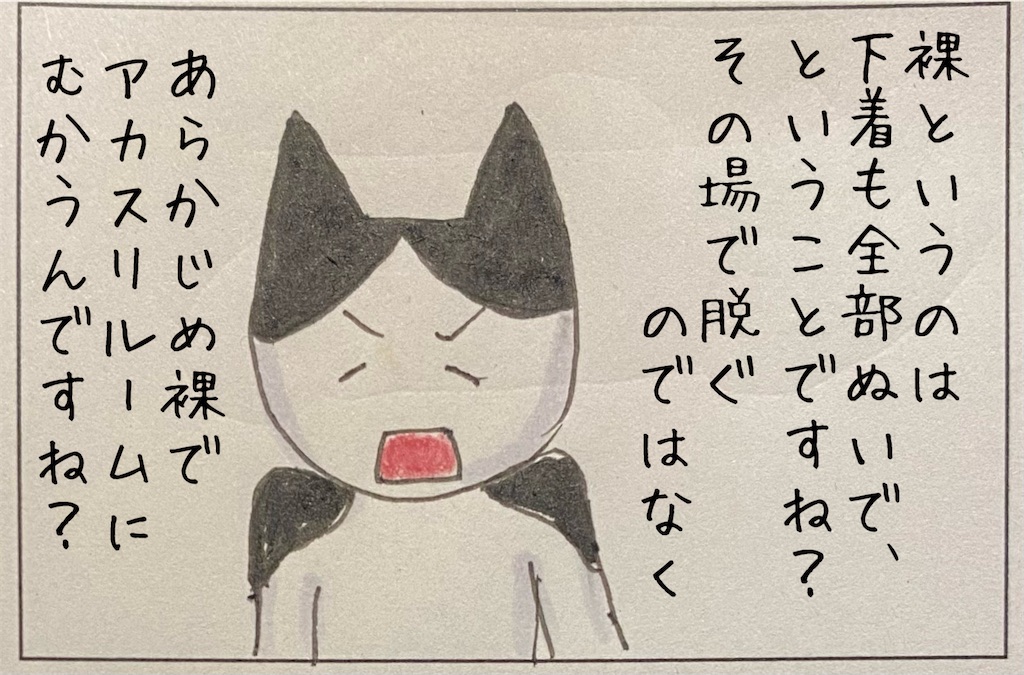 裸というのは
下着も全部ぬいで、
ということですね?
その場で脱ぐ
のではなく
あらかじめ裸で
アカスリルームに
むかうんですね?